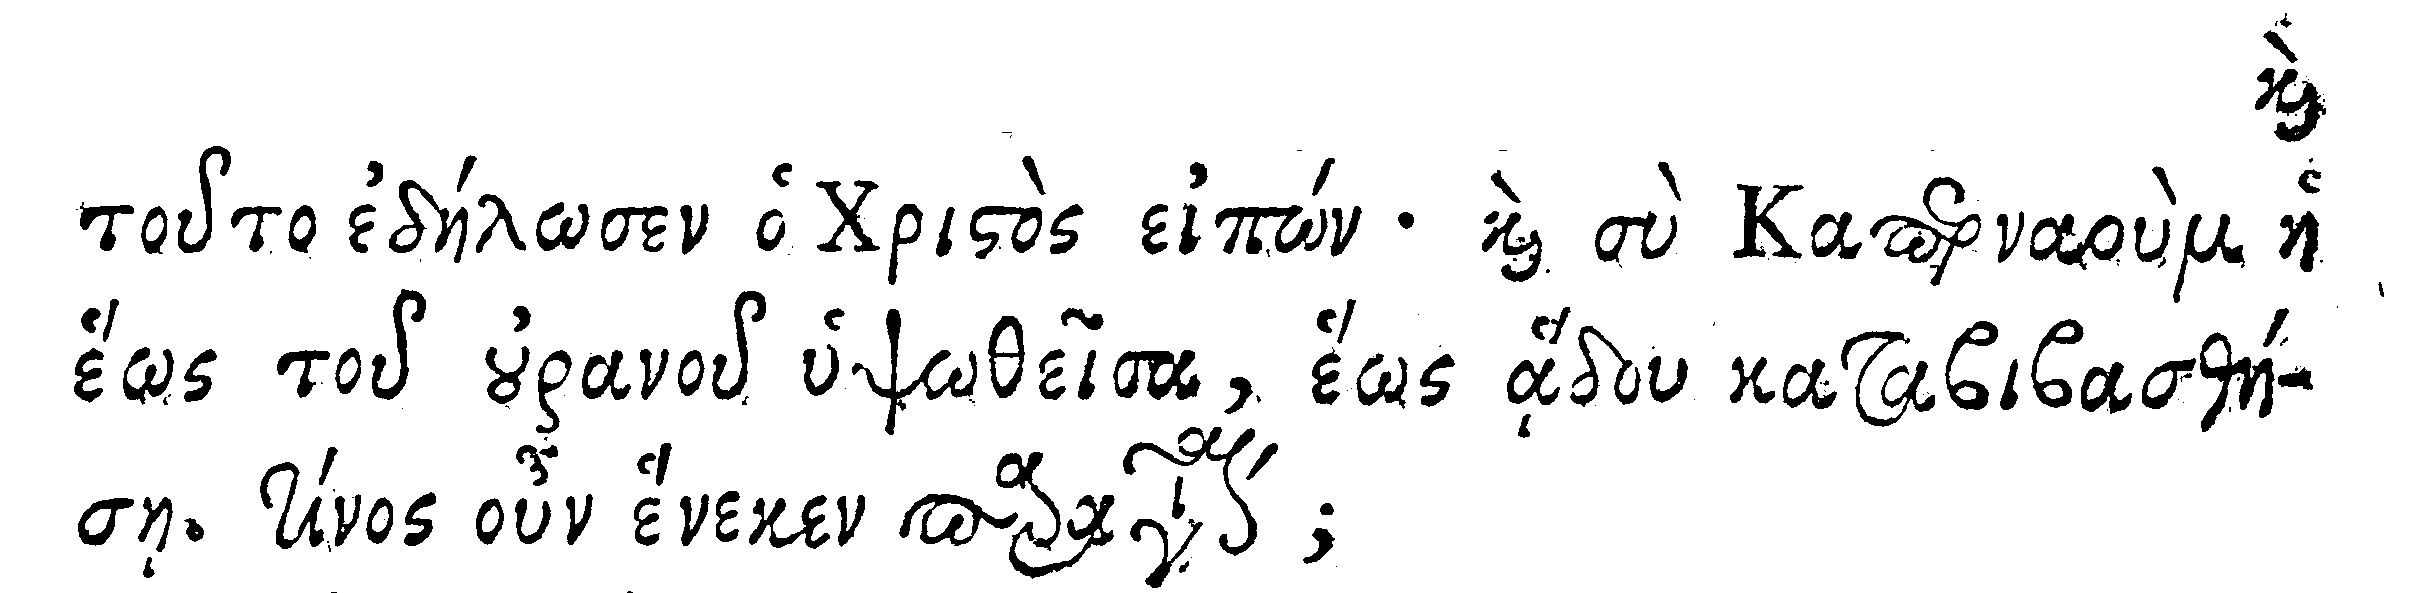 καὶ
τοῦτο ἐδήλωσεν ὁ Χριστὸς εἰπών· καὶ σὺ Καπερναοὺμ ἡ
ἕως τοῦ οὐρανοῦ ὑψωθεῖσα, ἕως ᾅδου καταβιβασθή-
σῃ. τίνος οὖν ἕνεκεν ;